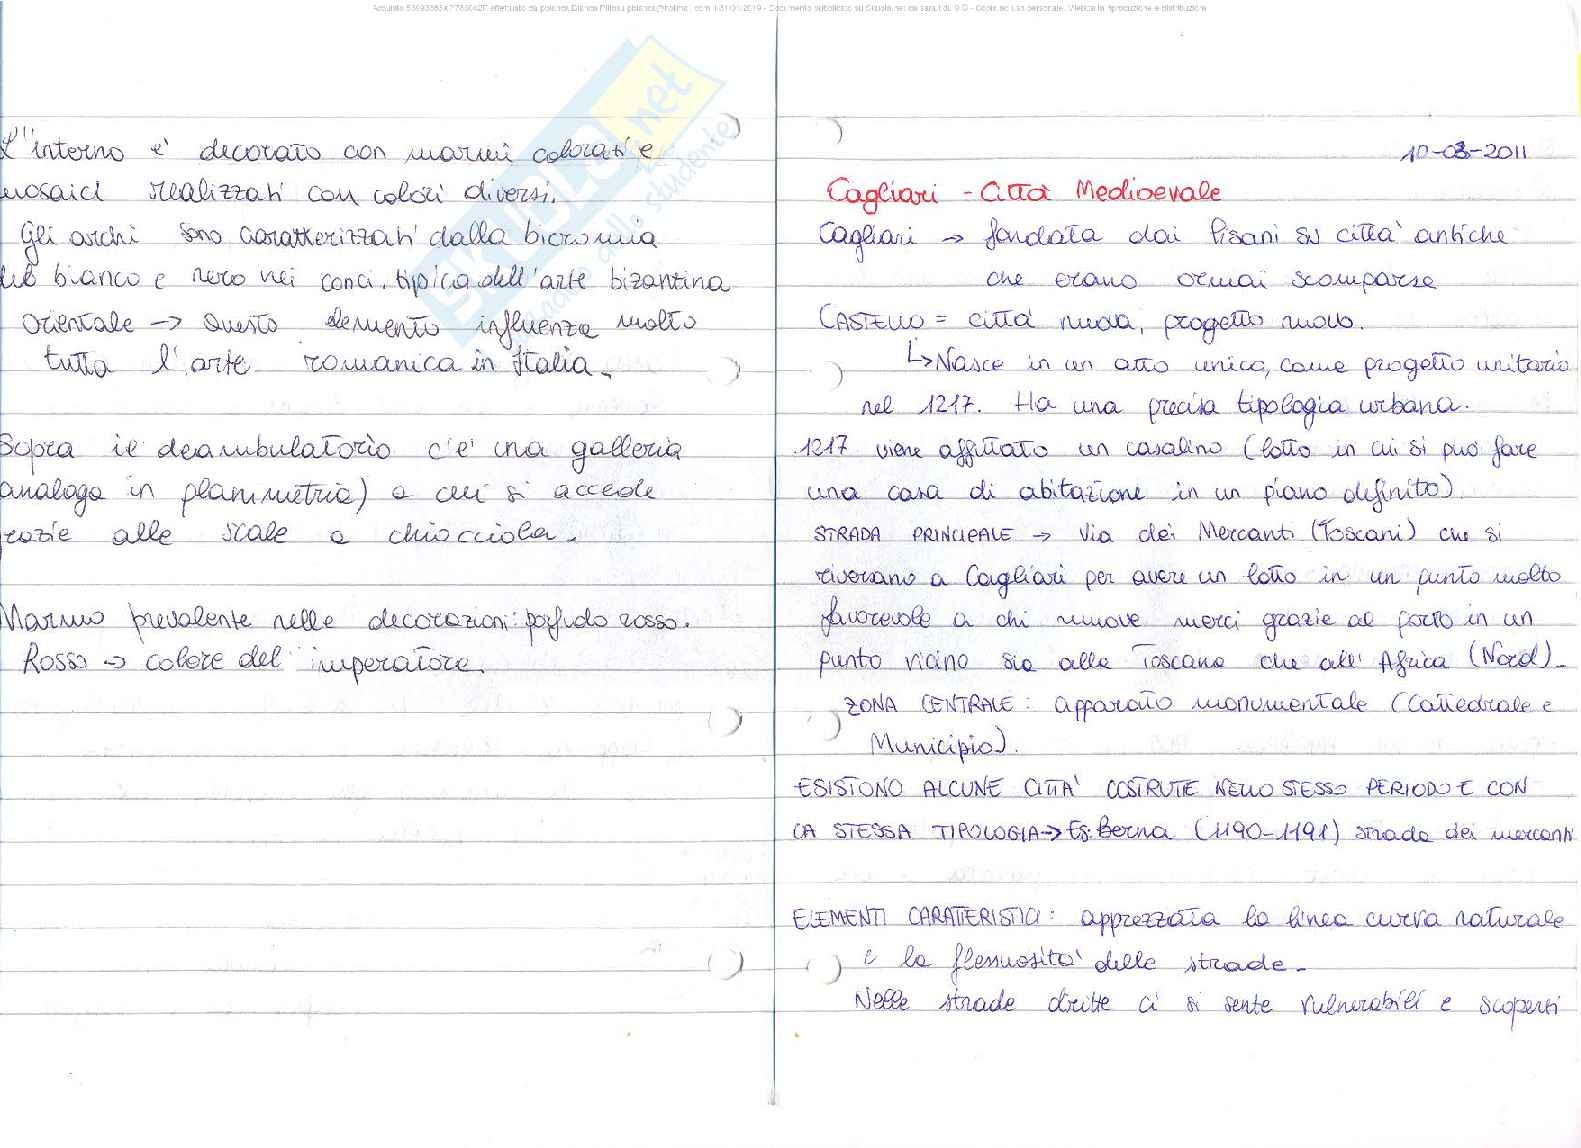 L'interno è decorato con marmi colorati e
mosaici realizzati con colori diversi.
Gli archi sono caratterizzati dalla bicromia
bianco e nero nei conci, tipica dell'arte bizantina
orientale → Questo elemento influenza molto
tutta l'arte romanica in Italia.
Sopra il deambulatorio c'è una galleria
analoga in planimetria) a cui si accede
grazie alle scale a chiocciola.
Marmo prevalente nelle decorazioni: porfido rosso.
Rosso → colore dell'imperatore.
SKUOLA.net
10-03-2011
Cagliari - Città Medioevale
Cagliari → fondata dai Pisani su città antiche
che erano ormai scomparse
CASTELLO = città nuova, progetto nuovo.
↳ Nasce in un atto unico, come progetto unitario
nel 1217. Ha una precisa tipologia urbana.
1217 viene affittato un casalino (lotto in cui si può fare
una casa di abitazione in un piano definito)
STRADA PRINCIPALE → Via dei Mercanti (Toscani) che si
riversano a Cagliari per avere un lotto in un punto molto
favorevole a chi muove merci grazie al porto in un
punto vicino sia alla Toscana che all'Africa (Nord).
ZONA CENTRALE: apparato monumentale (Cattedrale e
Municipio).
ESISTONO ALCUNE CITTA' COSTRUITE NELLO STESSO PERIODO E CON
LA STESSA TIPOLOGIA → Es: Berna (1190-1191) strada dei mercanti
ELEMENTI CARATTERISTICI: apprezzata la linea curva naturale
e la flessuosità delle strade.
Nelle strade dritte ci si sente vulnerabili e scoperti